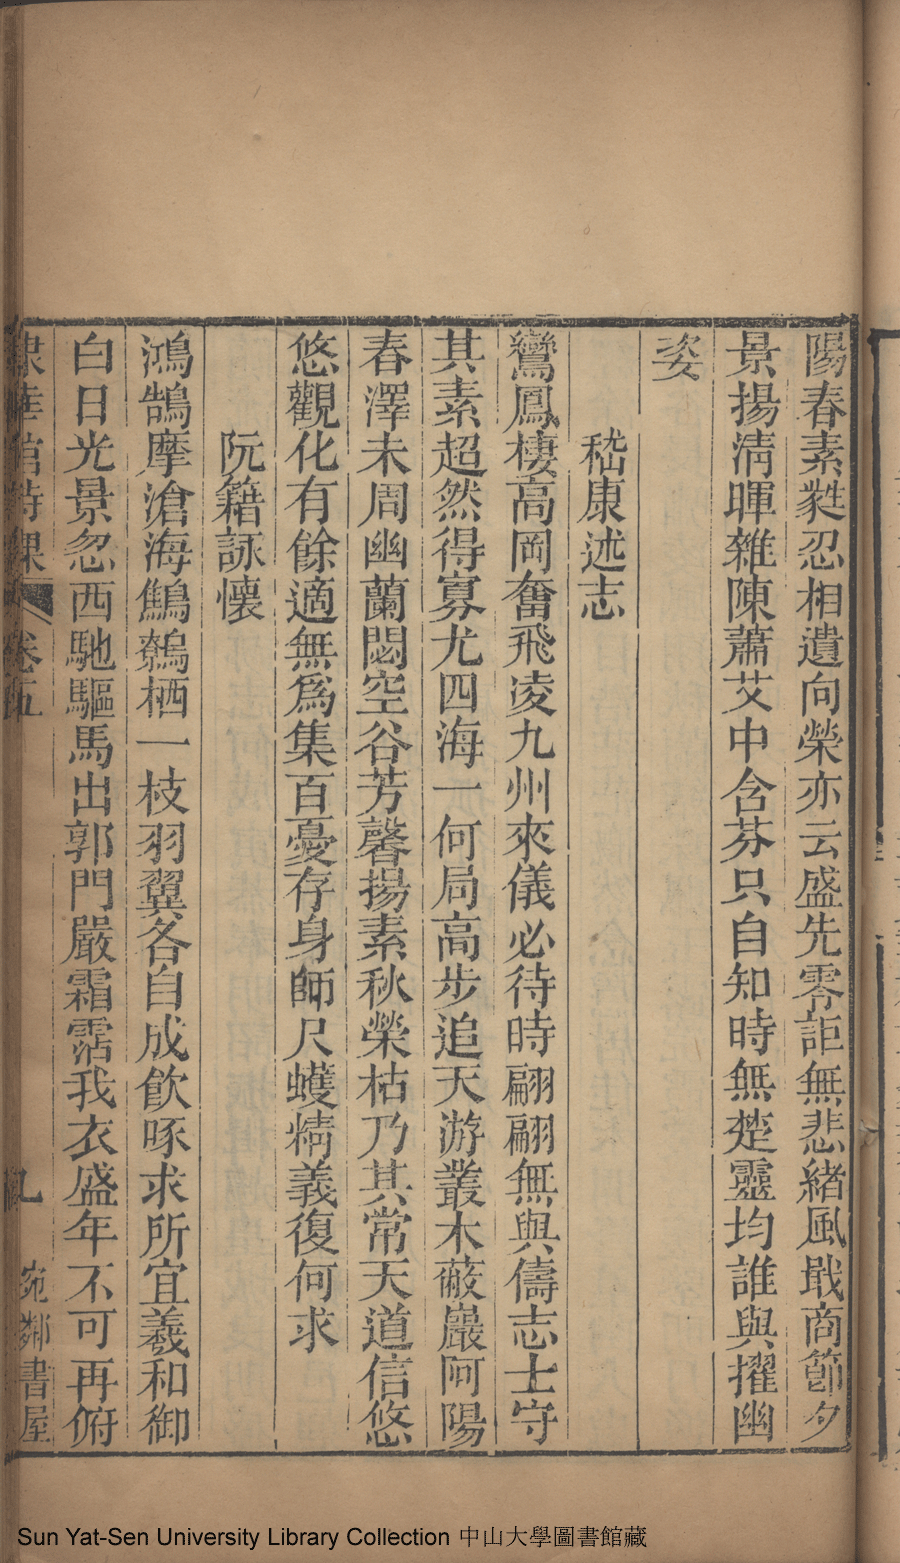 陽春素蕤忍相遺向榮亦云盛先零詎無悲緒風戢商節夕
景揚淸暉雜陳蕭艾中含芬只自知時無楚靈均誰與擢幽
姿
嵇康述志
鸞鳳棲高岡奮飛凌九州來儀必待時翩翩無與儔志士守
其素超然得寡尤四海一何局高步追天游叢木蔽巖阿陽
春澤未周幽蘭閟空谷芳馨揚素秋榮枯乃其常天道信悠
悠觀化有餘適無爲集百憂存身師尺蠖精義復何求
阮籍詠懷
鴻鵠摩滄海鷦鷯栖一枝羽翼各自成飮啄求所宜羲和御
白日光景忽西馳驅馬出郭門嚴霜霑我衣盛年不可再俯
館詩課 卷五 九 宛鄰書屋
Sun Yat-Sen University Library Collection 中山大學圖書館藏